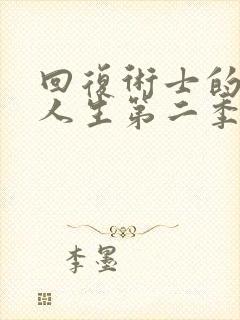 回復術士的
人生第二季
李墨